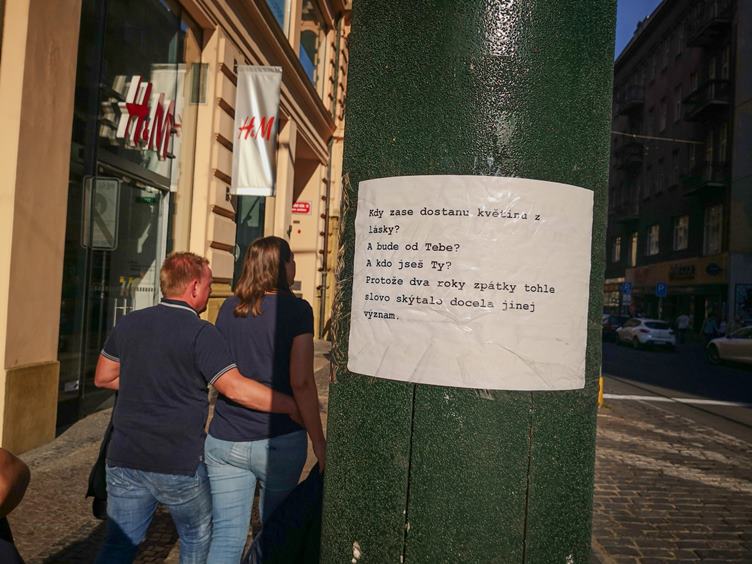 H&M
H&M
Kdy zase dostanu květinu z
lásky?
A bude od Tebe?
A kdo jseš Ty?
Protože dva roky zpátky tohle
slovo skýtalo docela jinej
význam.